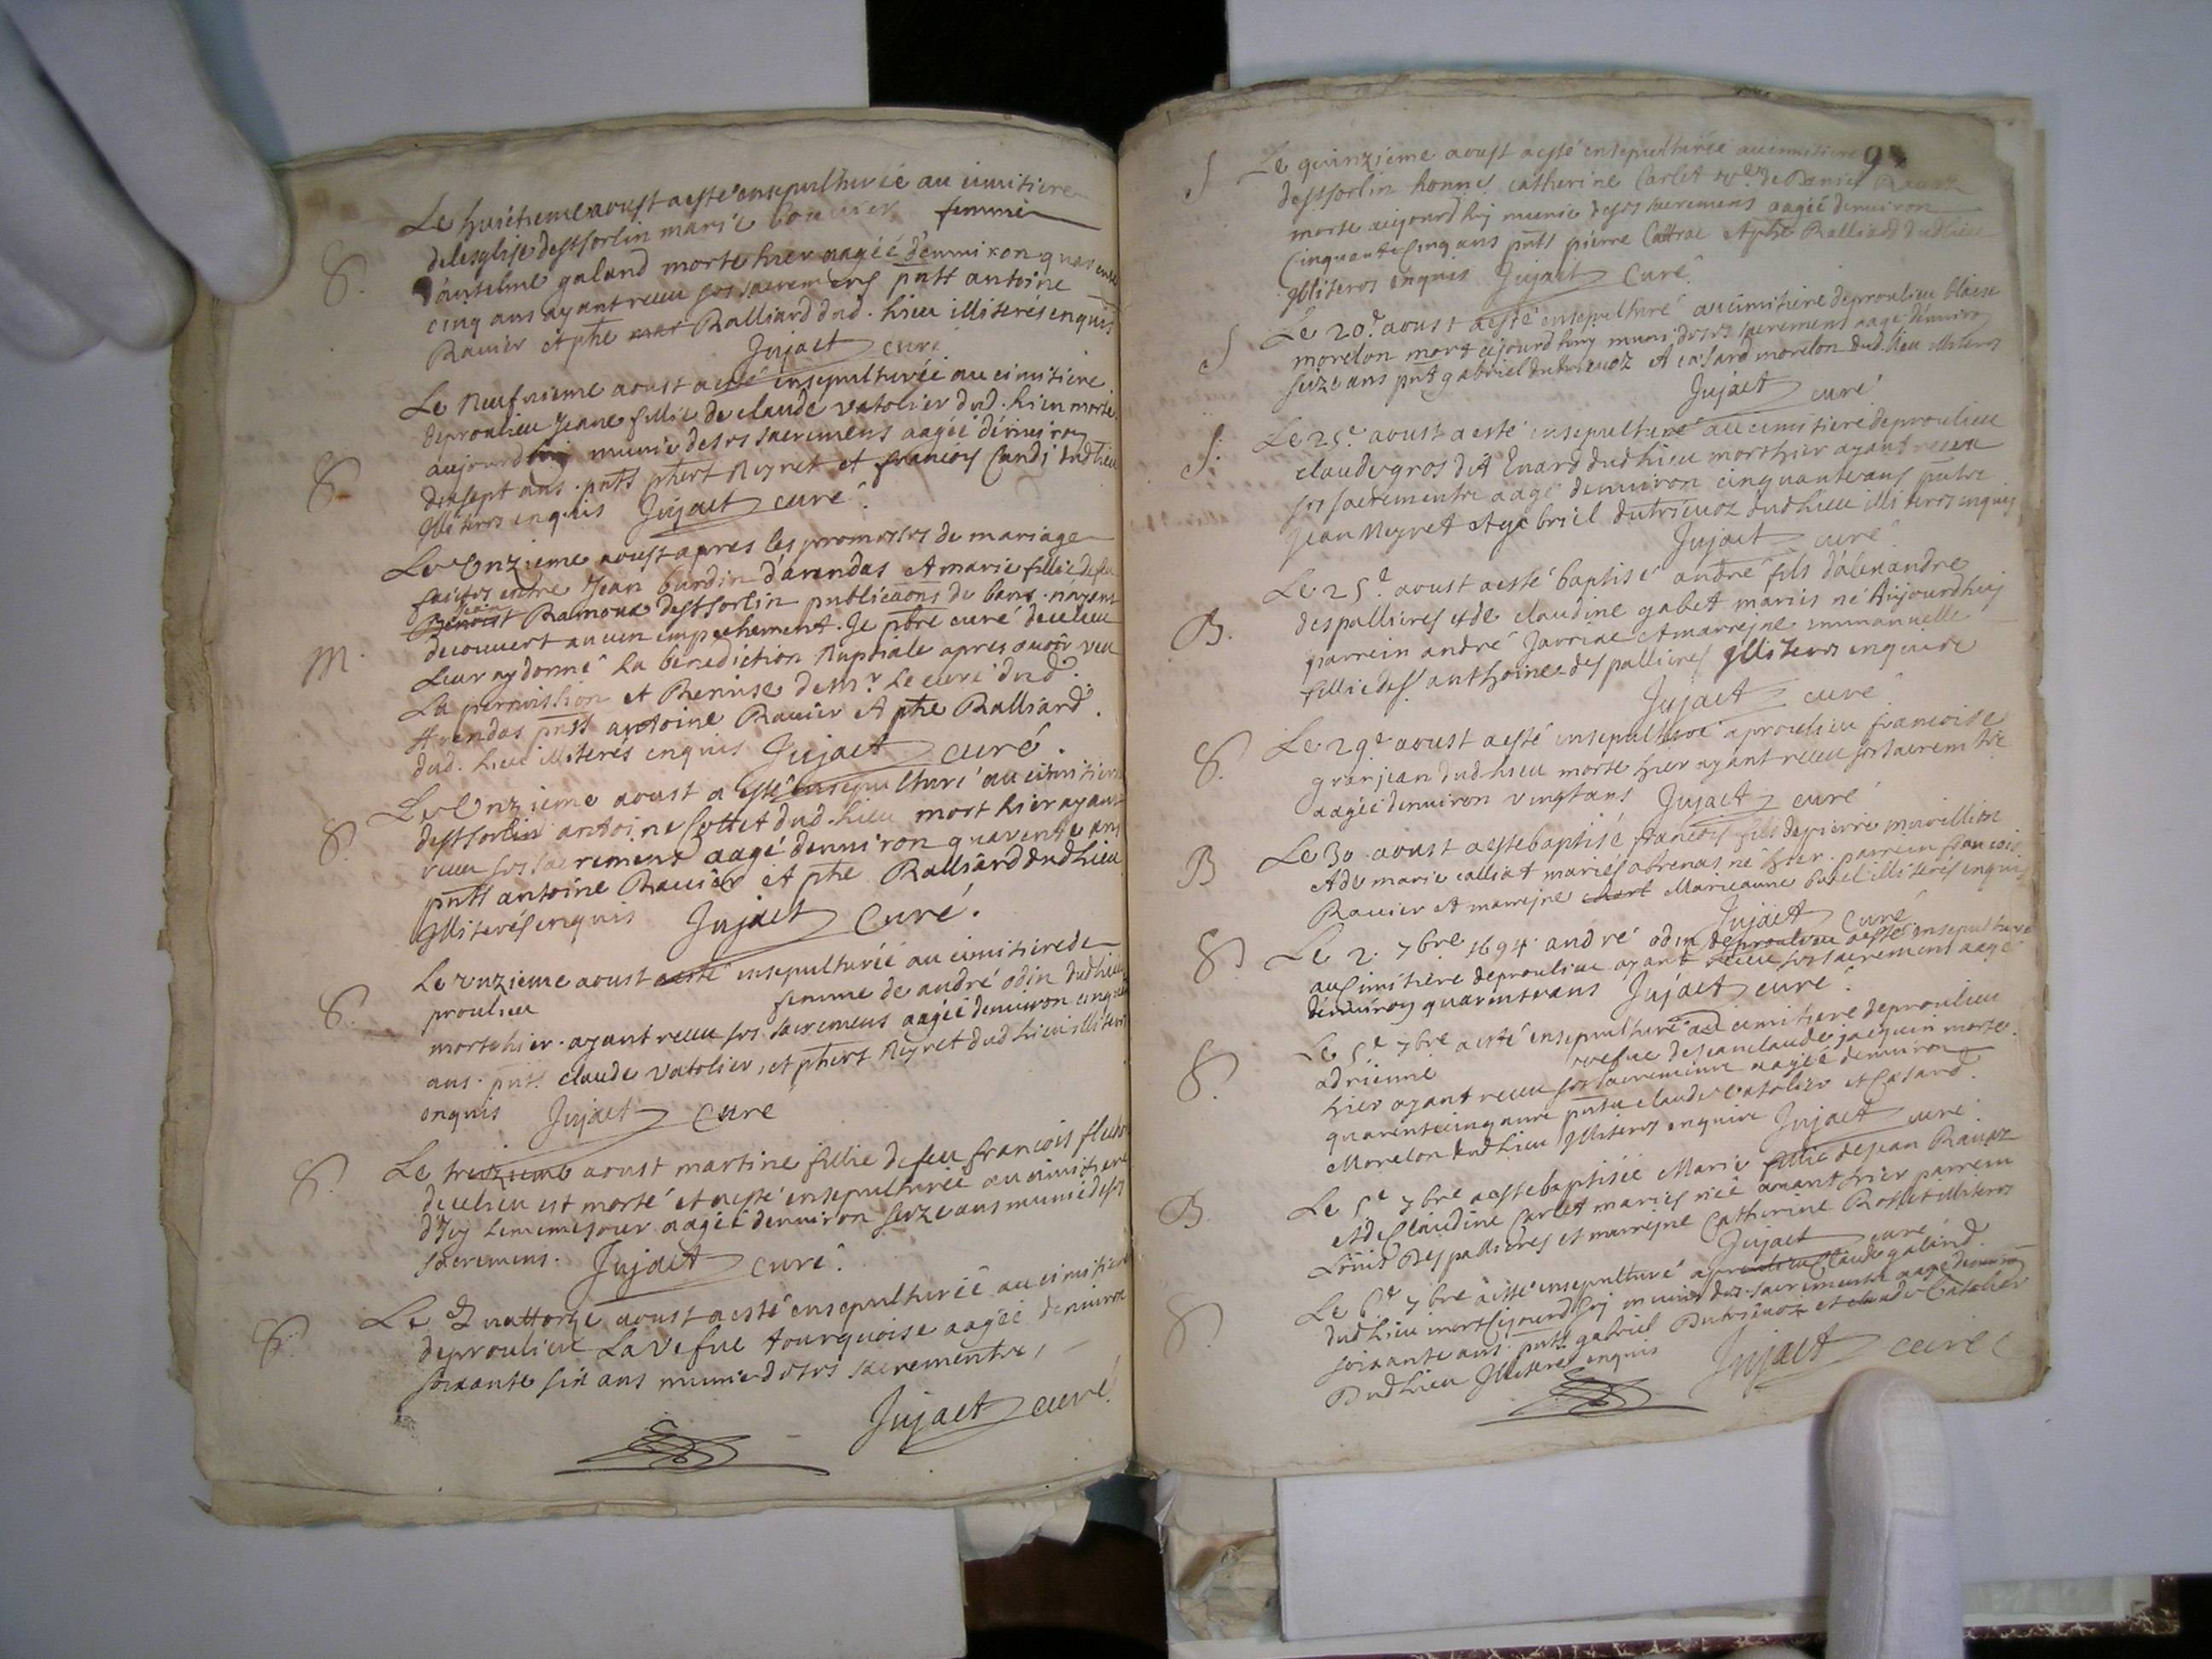 Le huictieme aoust a esté ensepulturée au cimitiere
S. de lesglise de st sorlin marie femme
d'anselme galand morte hier aagée d'environ quarente
cinq ans ayant receu ses sacremens pntt antoine
Rauier et phe Ralliard dud. lieu illiterés enquis
Jujact curé
Le neufuieme aoust a esté ensepulturée au cimitiere
de proulieu Jeane fillie de claude vatolier dud. lieu morte
S. aujourdhuy munie de ses sacremens aagée d'enuiron
dixsept ans. pntt phert Neyret et francois Candi dud lieu
Illiteres enquis Jujact curé.
Le Onzieme aoust apres les promesses de mariage
faictes entre Jean burdin d'arandas et marie fillie de feu
Jean
Benoist Ramoux de st sorlin publications de bans n'ayant
M. decouuert aucun empechement. Je pbre curé de ce lieu
leur ay donné la benediction Nuptiale apres auoir veu
la permission et Remise de mr le curé dud.
Arandas pntt antoine Rauier et phe Ralliard
dud. lieu illiterés enquis Jujact curé.
Le Onzieme aoust a esté ensepulturé au cimitiere
S. de st sorlin antoine Cottet dud. lieu mort hier ayant
receu ses sacremens aagé denuiron quarente ans
pntt antoine Rauier et phe Ralliard dud lieu
Illiterés enquis Jujact Curé.
Le unzieme aoust a esté ensepulturée au cimitiere de
S. proulieu femme de andré odin dud lieu
morte hier. ayant receu ses sacremens aagée denuiron cinquante
ans. pntt claude vatolier, et phert Neyret dud lieu illiteres
enquis Jujact Curé
S. Le treizieme aoust martine fillie de feu francois
de ce lieu est morte et a esté ensepulturée au cimitiere
d'Icy le meme jour aagée denuiron seize ans munie de ses
sacremens. Jujact curé.
S. Le Quattorze aoust a esté ensepulturée au cimitiere
de proulieu La Vefue tourquoise aagée denuiron
soixante six ans munie de ses sacrements,
Jujact curé.
9
S Le quinzieme aoust a esté ensepulturée au cimitiere
de st sorlin honne catherine Carlet vve de Rauoz
morte aujourdhuy munie de ses sacremens aagée denuiron
Cinquante cinq ans pntt pierre Cattrac et phe Ralliard dud lieu
Illiteres enquis Jujact Curé.
S Le 20e aoust a esté ensepulturé au cimitiere de proulieu blaise
morelon mort aujourdhuy muni de ses sacremens aagé denuiron
seize ans pnt gabriel dutrieuoz et Cesard morelon dud. lieu illiteres
Jujact curé
S. Le 25e aoust a esté ensepulturé au cimitiere de proulieu
claude gros dit Enard dud lieu mort hier ayant receu
ses sacrements aagé denuiron cinquante ans pntte
Jean Neyret et gabriel dutrieuoz dud lieu illiteres enquis
Jujact curé
Le 25e aoust a esté baptisé andré fils d'alexandre
B. despallieres et de claudine gabet mariés né Aujourdhuy
parrein andré Jarrine et marreyne emmanuelle
fillie de anthoine despallieres Illiteres enquire
Jujact curé
S. Le 29e aoust a esté ensepulturé a proulieu francoise
granjean dud lieu morte hier ayant receu ses sacrements
aagée denuiron vingt ans Jujact curé
B Le 30 aoust a este baptisé francois fils de pierre
et de marie calliat mariés né hier. parrein francois
Rauier et marreyne Marieanne illiterés enquis
Jujact Curé
S Le 2. 7bre 1694 andré odin de proulieu a esté ensepulturé
au Cimitiere de proulieu ayant receu ses sacremens aagé
denuiron quarente ans Jujact curé.
Le 5e 7bre a esté ensepulturé au cimitiere de proulieu
S. adrienne vefue de jean claude jacquin morte
hier ayant receu ses sacremens aagée denuiron
quarente cinq ans pntte claude vatolier et Cesard
Morelon dud lieu Illiteres enquire Jujact curé.
B. Le 5e 7bre a este baptisée Marie fillie de jean Rauoz
et de Claudine Carlet mariés née auant hier parrein
Louis Despallieres et marreyne Catherine Rosset illiteres
Jujact curé
S. Le 6e 7bre a esté ensepulturé a proulieu Claude galand
dud lieu mort aujourdhuy muni des sacrements aagé denuiron
soixante ans. pntt gabriel Dutrieuoz et claude Vatolier
Dud lieu Illiteres enquis Jujact curé